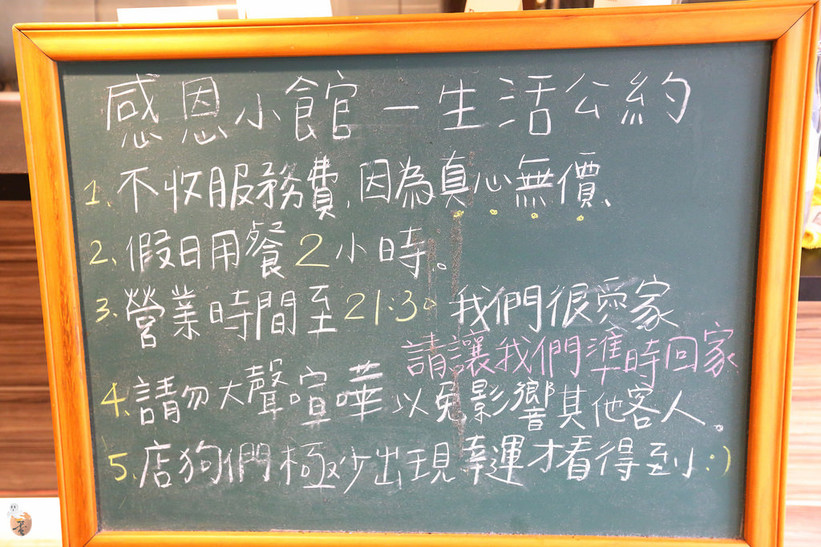 感恩小館－生活公約
1. 不收服務費，因為真心無價、
2. 假日用餐2小時。
3. 營業時間至21:30 我們很愛家
請讓我們準時回家
4. 請勿大聲喧嘩 以免影響其他客人。
5. 店狗們極少出現幸運才看得到:)